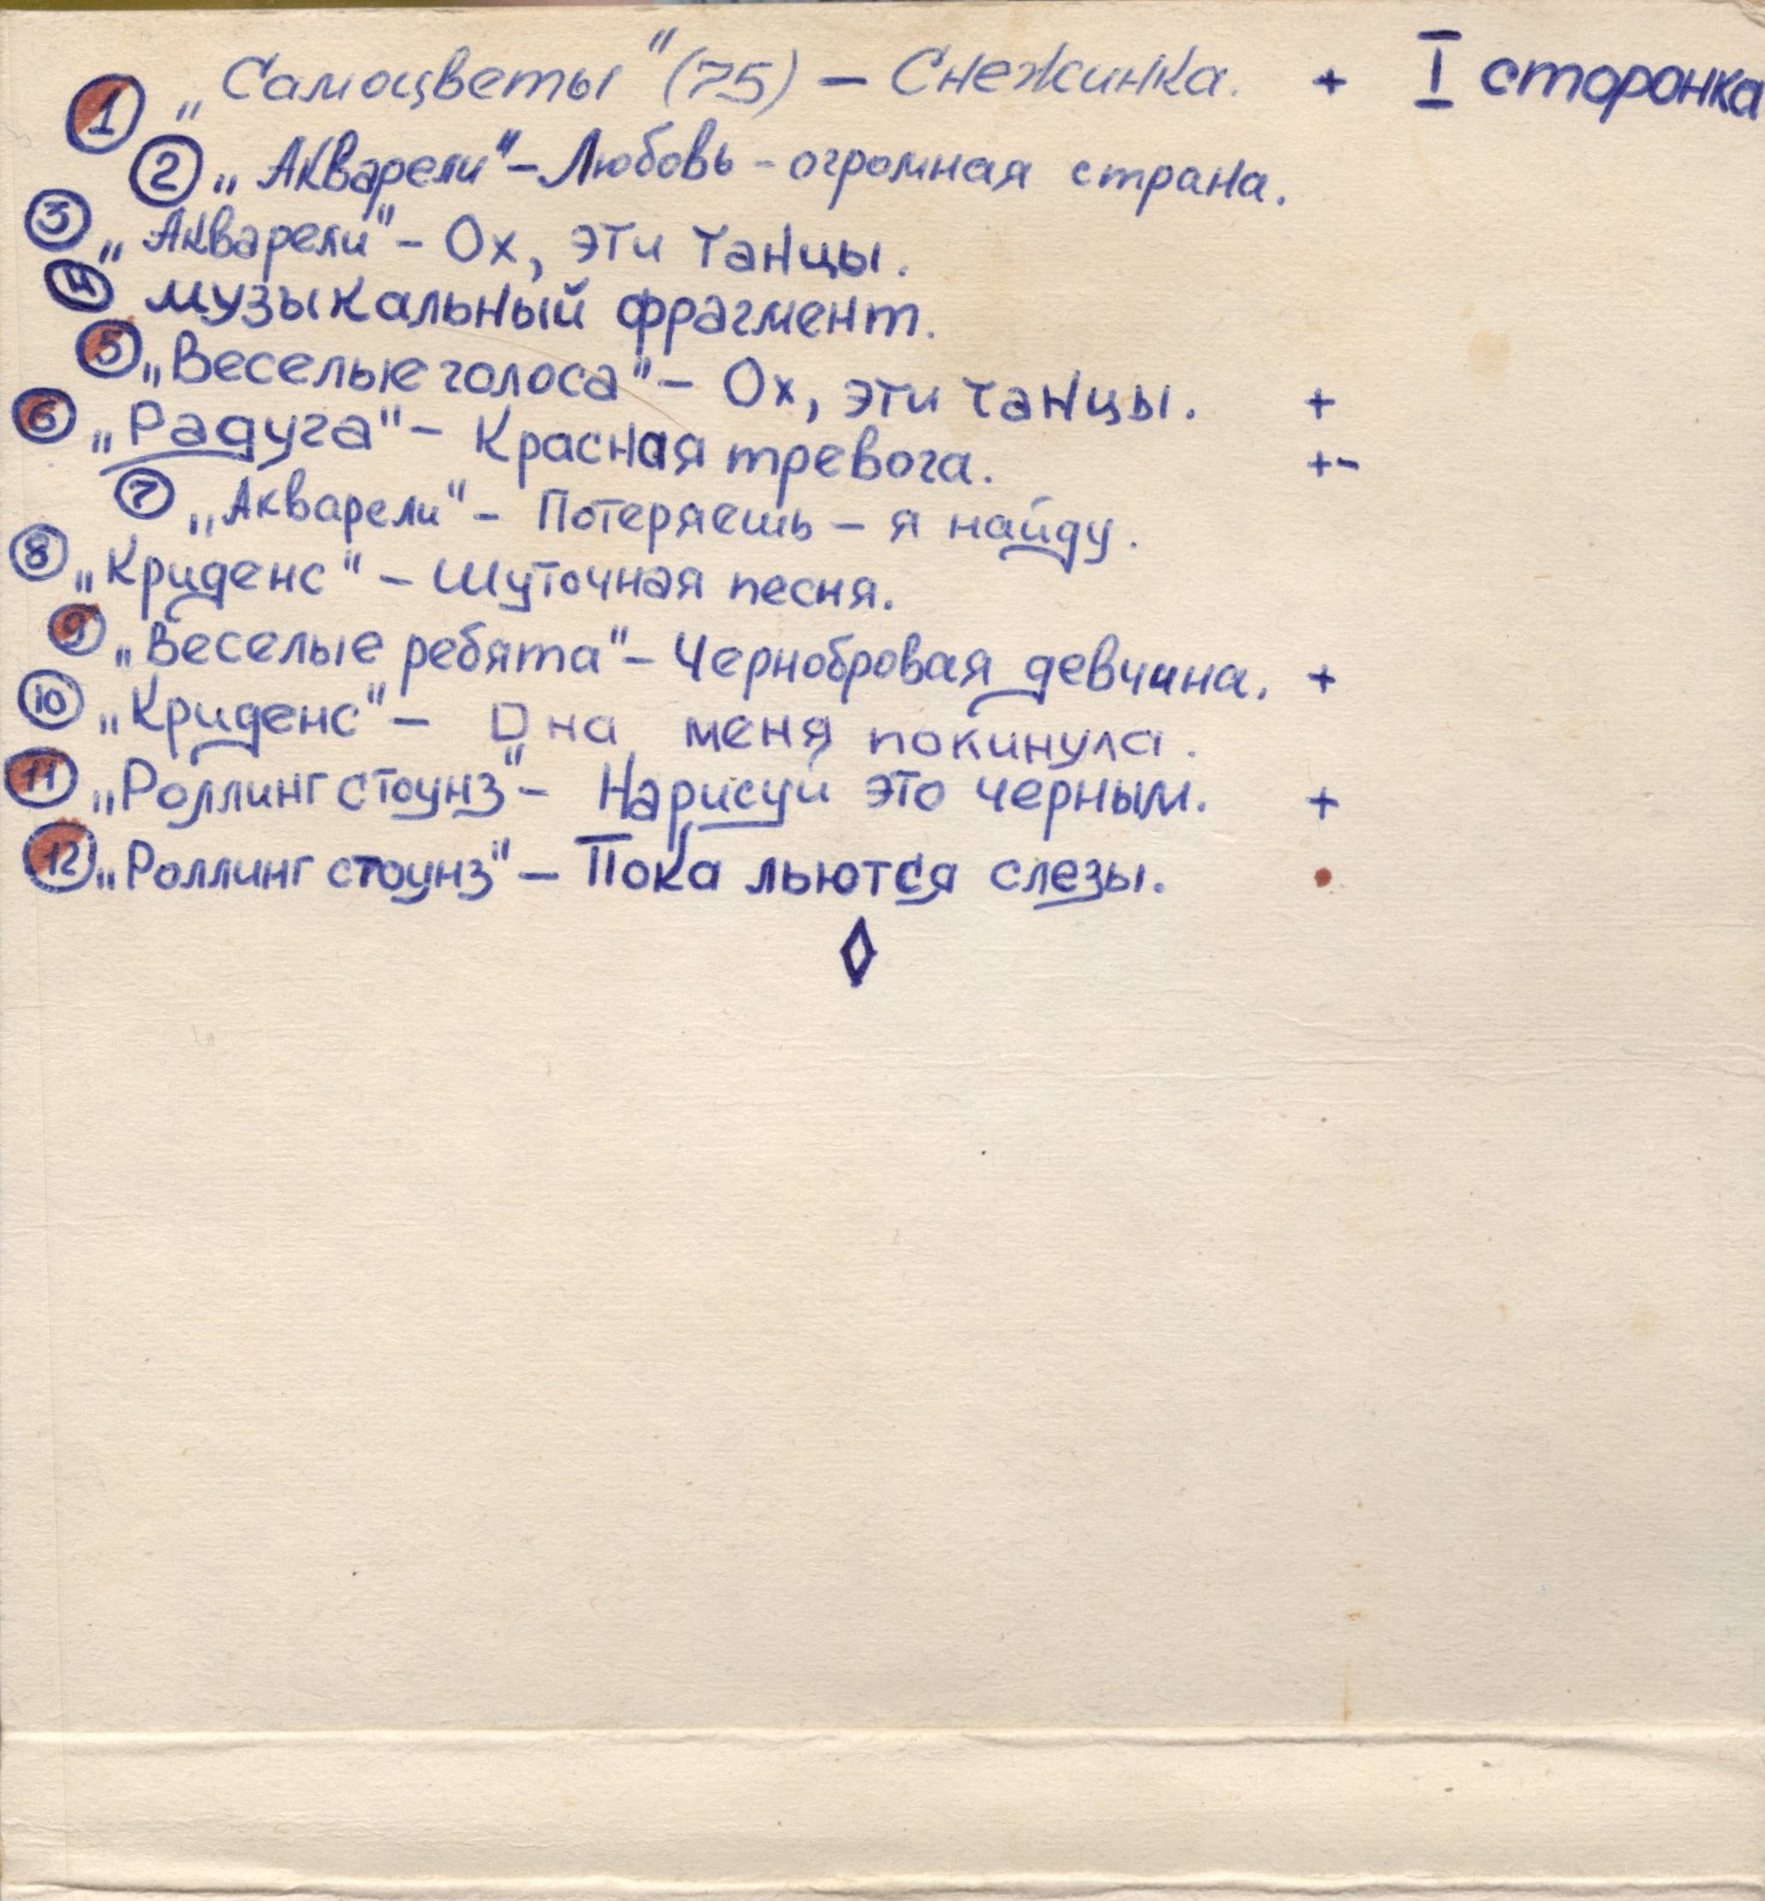 ① „Самоцветы" (75) – Снежинка. + I сторонка
② „Акварели" – Любовь - огромная страна.
③ „Акварели" – Ох, эти танцы.
④ музыкальный фрагмент.
⑤ „Веселые голоса" – Ох, эти танцы. +
⑥ „Радуга" – Красная тревога. +-
⑦ „Акварели" – Потеряешь – я найду.
⑧ „Криденс" – Шуточная песня.
⑨ „Веселые ребята" – Чернобровая девчина. +
⑩ „Криденс" – Она меня покинула.
⑪ „Роллинг стоунз" – Нарисуй это черным. +
⑫ „Роллинг стоунз" – Пока льются слезы.